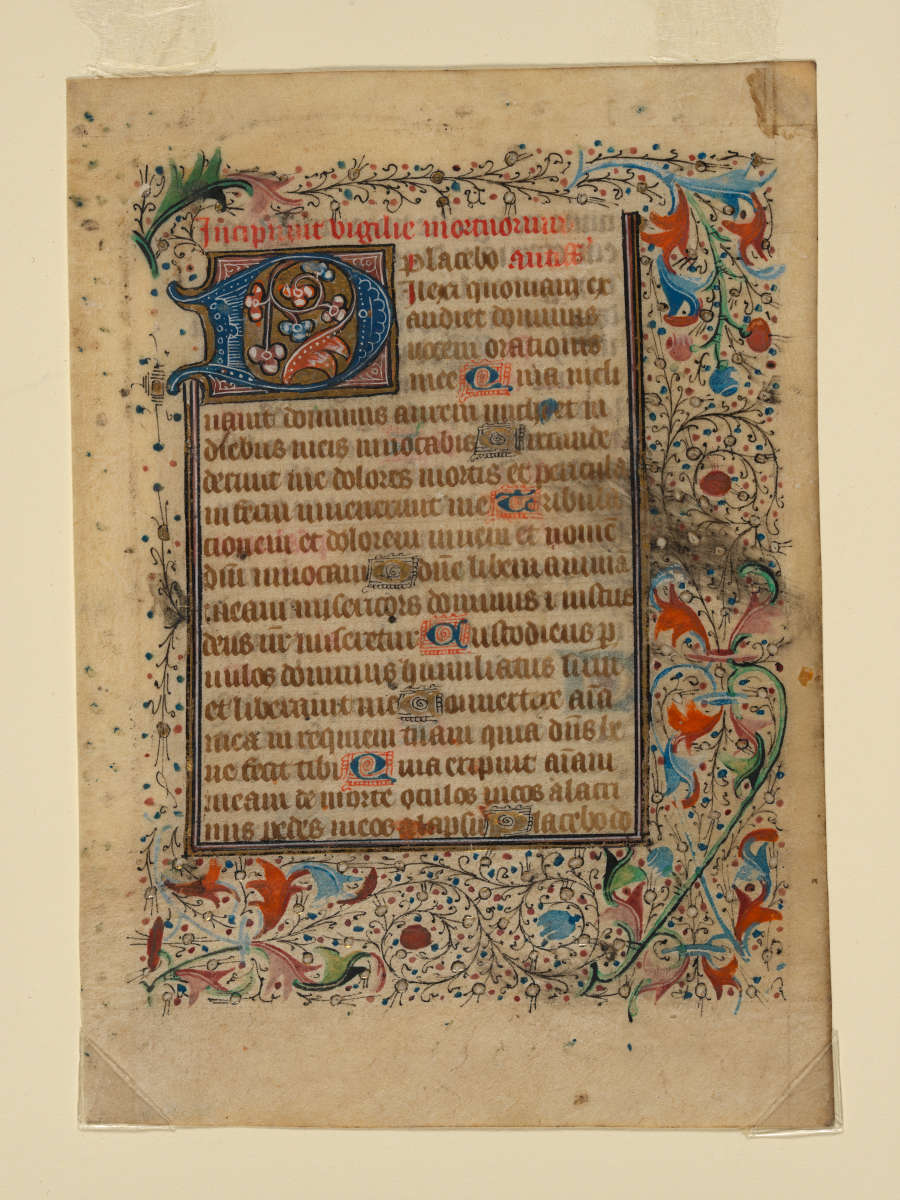 Incipiunt vigilie mortuorum
Placebo antiffa
Dilexi quoniam ex
audiet dominus
vocem orationis
mee Quia incli
nauit dominus aurem michi et in
diebus meis inuocabis Circunde
derunt me dolores mortis et pericula
inferni inuenerunt me Tribula
cionem et dolorem inueni et nomē
dn̄i inuocaui O dn̄e libera animā
meam misericors dominus i iustus
deus nr̄ miseretur Custodiens p
uulos dominus humiliatus sum
et liberauit me Conuertere aīa
mea in requiem tuam quia dn̄s be
ne fecit tibi Quia eripuit aīam
meam de morte oculos meos a lacri
mis pedes meos a lapsu Placebo do